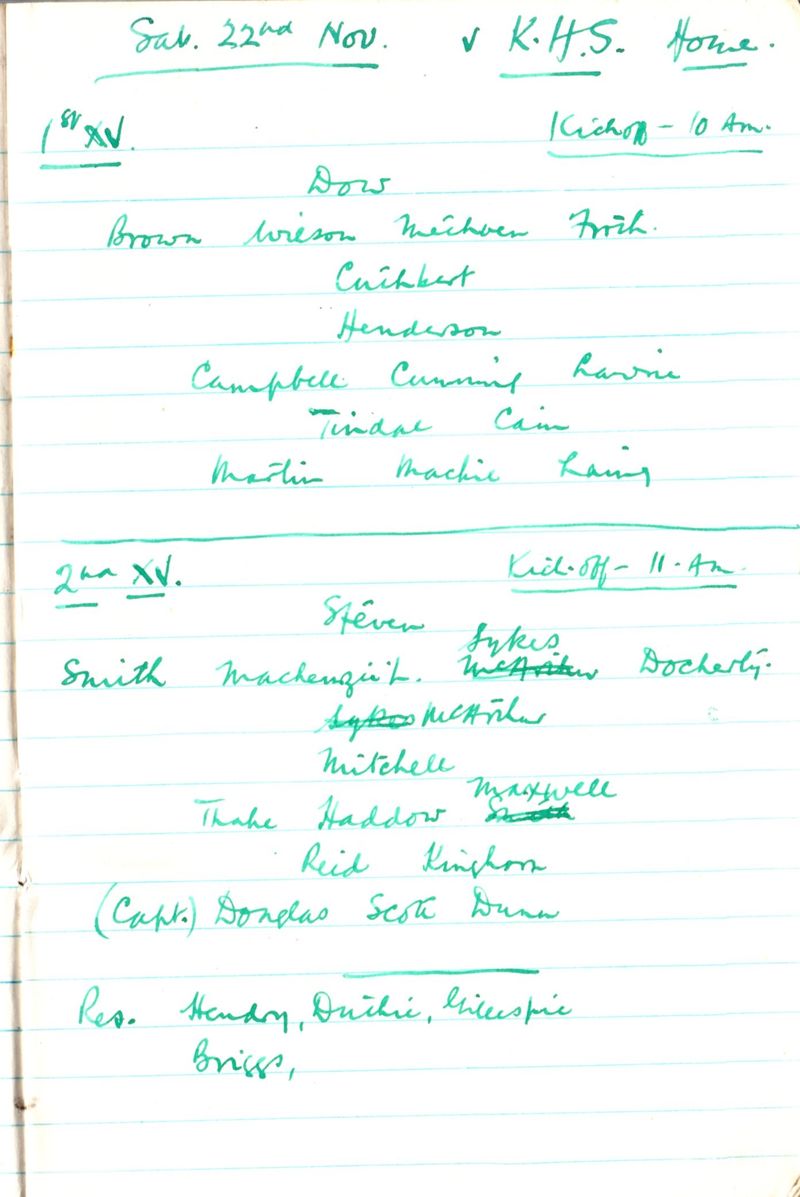 Sat. 22nd Nov. v K.H.S. Home.
1st XV. Kickoff - 10 Am.
Dow
Brown Wilson Methven Frith.
Cuthbert
Henderson
Campbell Cumming Lawrie
Tindal Cain
Martin Mackie Laing
2nd XV. Kick-off - 11. Am.
Steven
Sykes
Smith Mackenzie L. McArthur Docherty.
Sykes McArthur
Mitchell
Maxwell
Thake Haddow Smith
Reid Kinghorn
(Capt.) Douglas Scott Dunn
Res. Hendry, Duthie, Gillespie
Briggs,